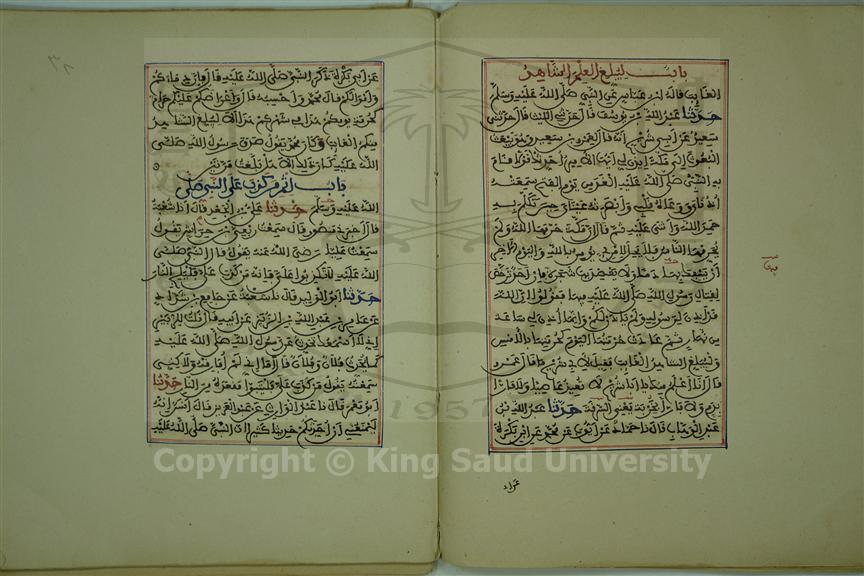 باب ليبلغ العلم الشاهد
الغايب قاله ابن عباس عن النبي صلى الله عليه وسلم
حدثنا عبد الله بن يوسف قال حدثني الليث قال حدثني
سعيد عن ابي شريح انه قال لعمرو بن سعيد وهو يبعث
البعوث الى مكة ايذن لي ايها الامير احدثك قولا قام
به النبي صلى الله عليه الغد من يوم الفتح سمعته
اذناي ووعاه قلبي وابصرته عيناي حين تكلم به
حمد الله واثنى عليه ثم قال ان مكة حرمها الله ولم
يحرمها الناس فلا يحل لامرئ يومن بالله واليوم الاخر
ان يسفك بها دما ولا يعضد بها شجرة فان احد ترخص
لقتال رسول الله صلى الله عليه فيها فقولوا ان الله
قد اذن لرسوله ولم ياذن لكم وانما اذن لي ساعة
من نهار ثم عادت حرمتها اليوم كحرمتها بالامس
وليبلغ الشاهد الغايب فقيل لابي شريح ما قال عمرو
قال انا اعلم منك يا ابا شريح لا تعيذ عاصيا ولا فارا
بدم ولا فارا بخربة يعني السرقة حدثنا عبد الله بن
عبد الوهاب قال نا حماد عن ايوب عن محمد عن ابي بكرة
٣٨
عن ابي بكرة ذكر النبي صلى الله عليه قال فان دماءكم
واموالكم قال محمد واحسبه قال واعراضكم عليكم حرام
كحرمة يومكم هذا في شهركم هذا الا ليبلغ الشاهد
منكم الغايب وكان محمد يقول صدق رسول الله صلى
الله عليه كان ذلك الا هل بلغت مرتين
باب اثم من كذب على النبي صلى
الله عليه وسلم حدثنا علي بن الجعد قال انا شعبة
قال اخبرني منصور قال سمعت ربعي بن حراش يقول
سمعت عليا رضي الله عنه يقول قال النبي صلى
الله عليه لا تكذبوا علي فانه من كذب علي فليلج النار
حدثنا ابو الوليد قال نا شعبة عن جامع بن شداد
عن عامر بن عبد الله بن الزبير عن ابيه قال قلت للزبير
اني لا اسمعك تحدث عن رسول الله صلى الله عليه
كما يحدث فلان وفلان قال اما اني لم افارقه ولاكني
سمعته يقول من كذب علي فليتبوا مقعده من النار حدثنا
ابو معمر قال نا عبد الوارث عن عبد العزيز قال انس انه
ليمنعني ان احدثكم حديثا كثيرا ان النبي صلى الله عليه
Copyright © King Saud University
1957